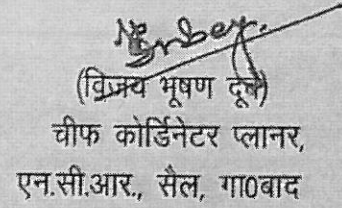 (विजय भूषण दूबे)
चीफ कोर्डिनेटर प्लानर,
एन.सी.आर., सैल, गा0बाद